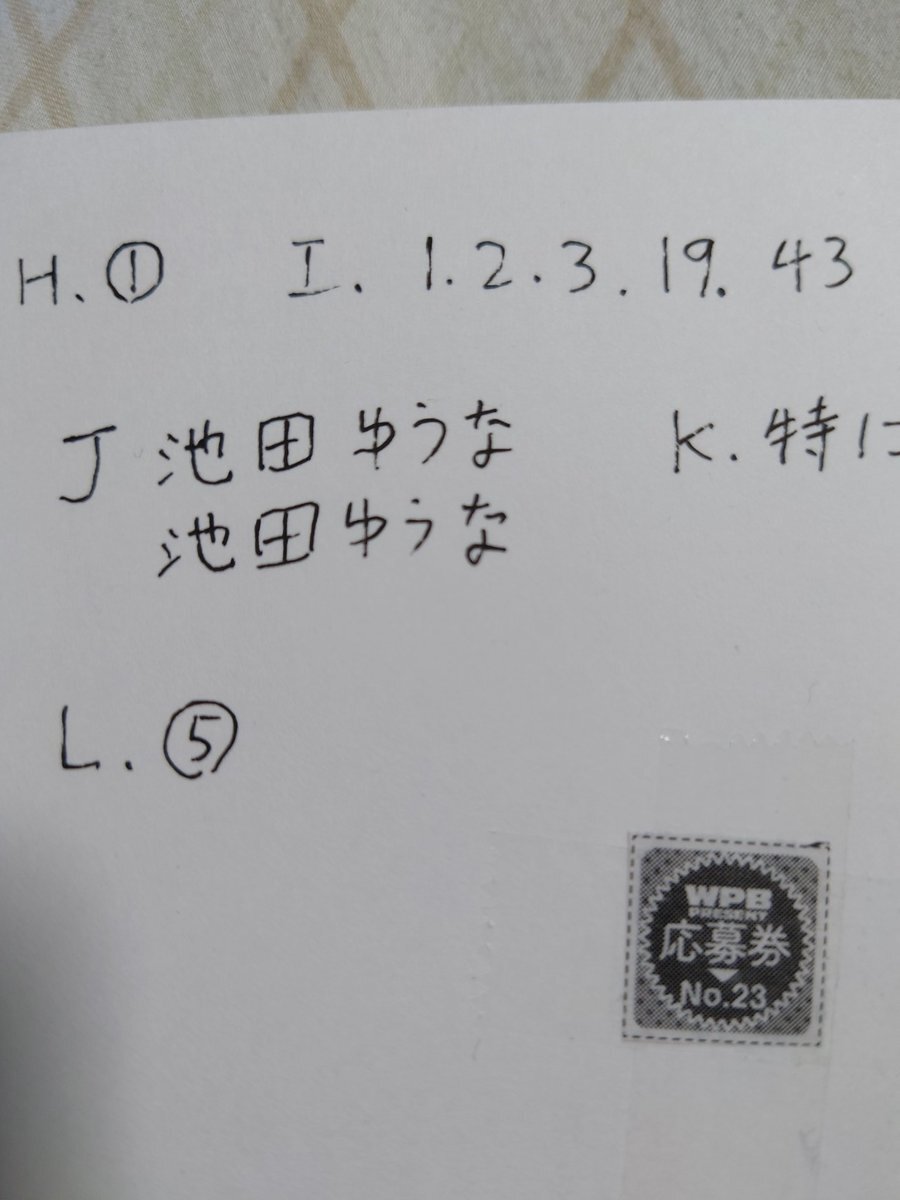 H.① I. 1.2.3.19.43
J 池田ゆうな K.特に
池田ゆうな
L.⑤
WPB
PRESENT
応募券
No.23